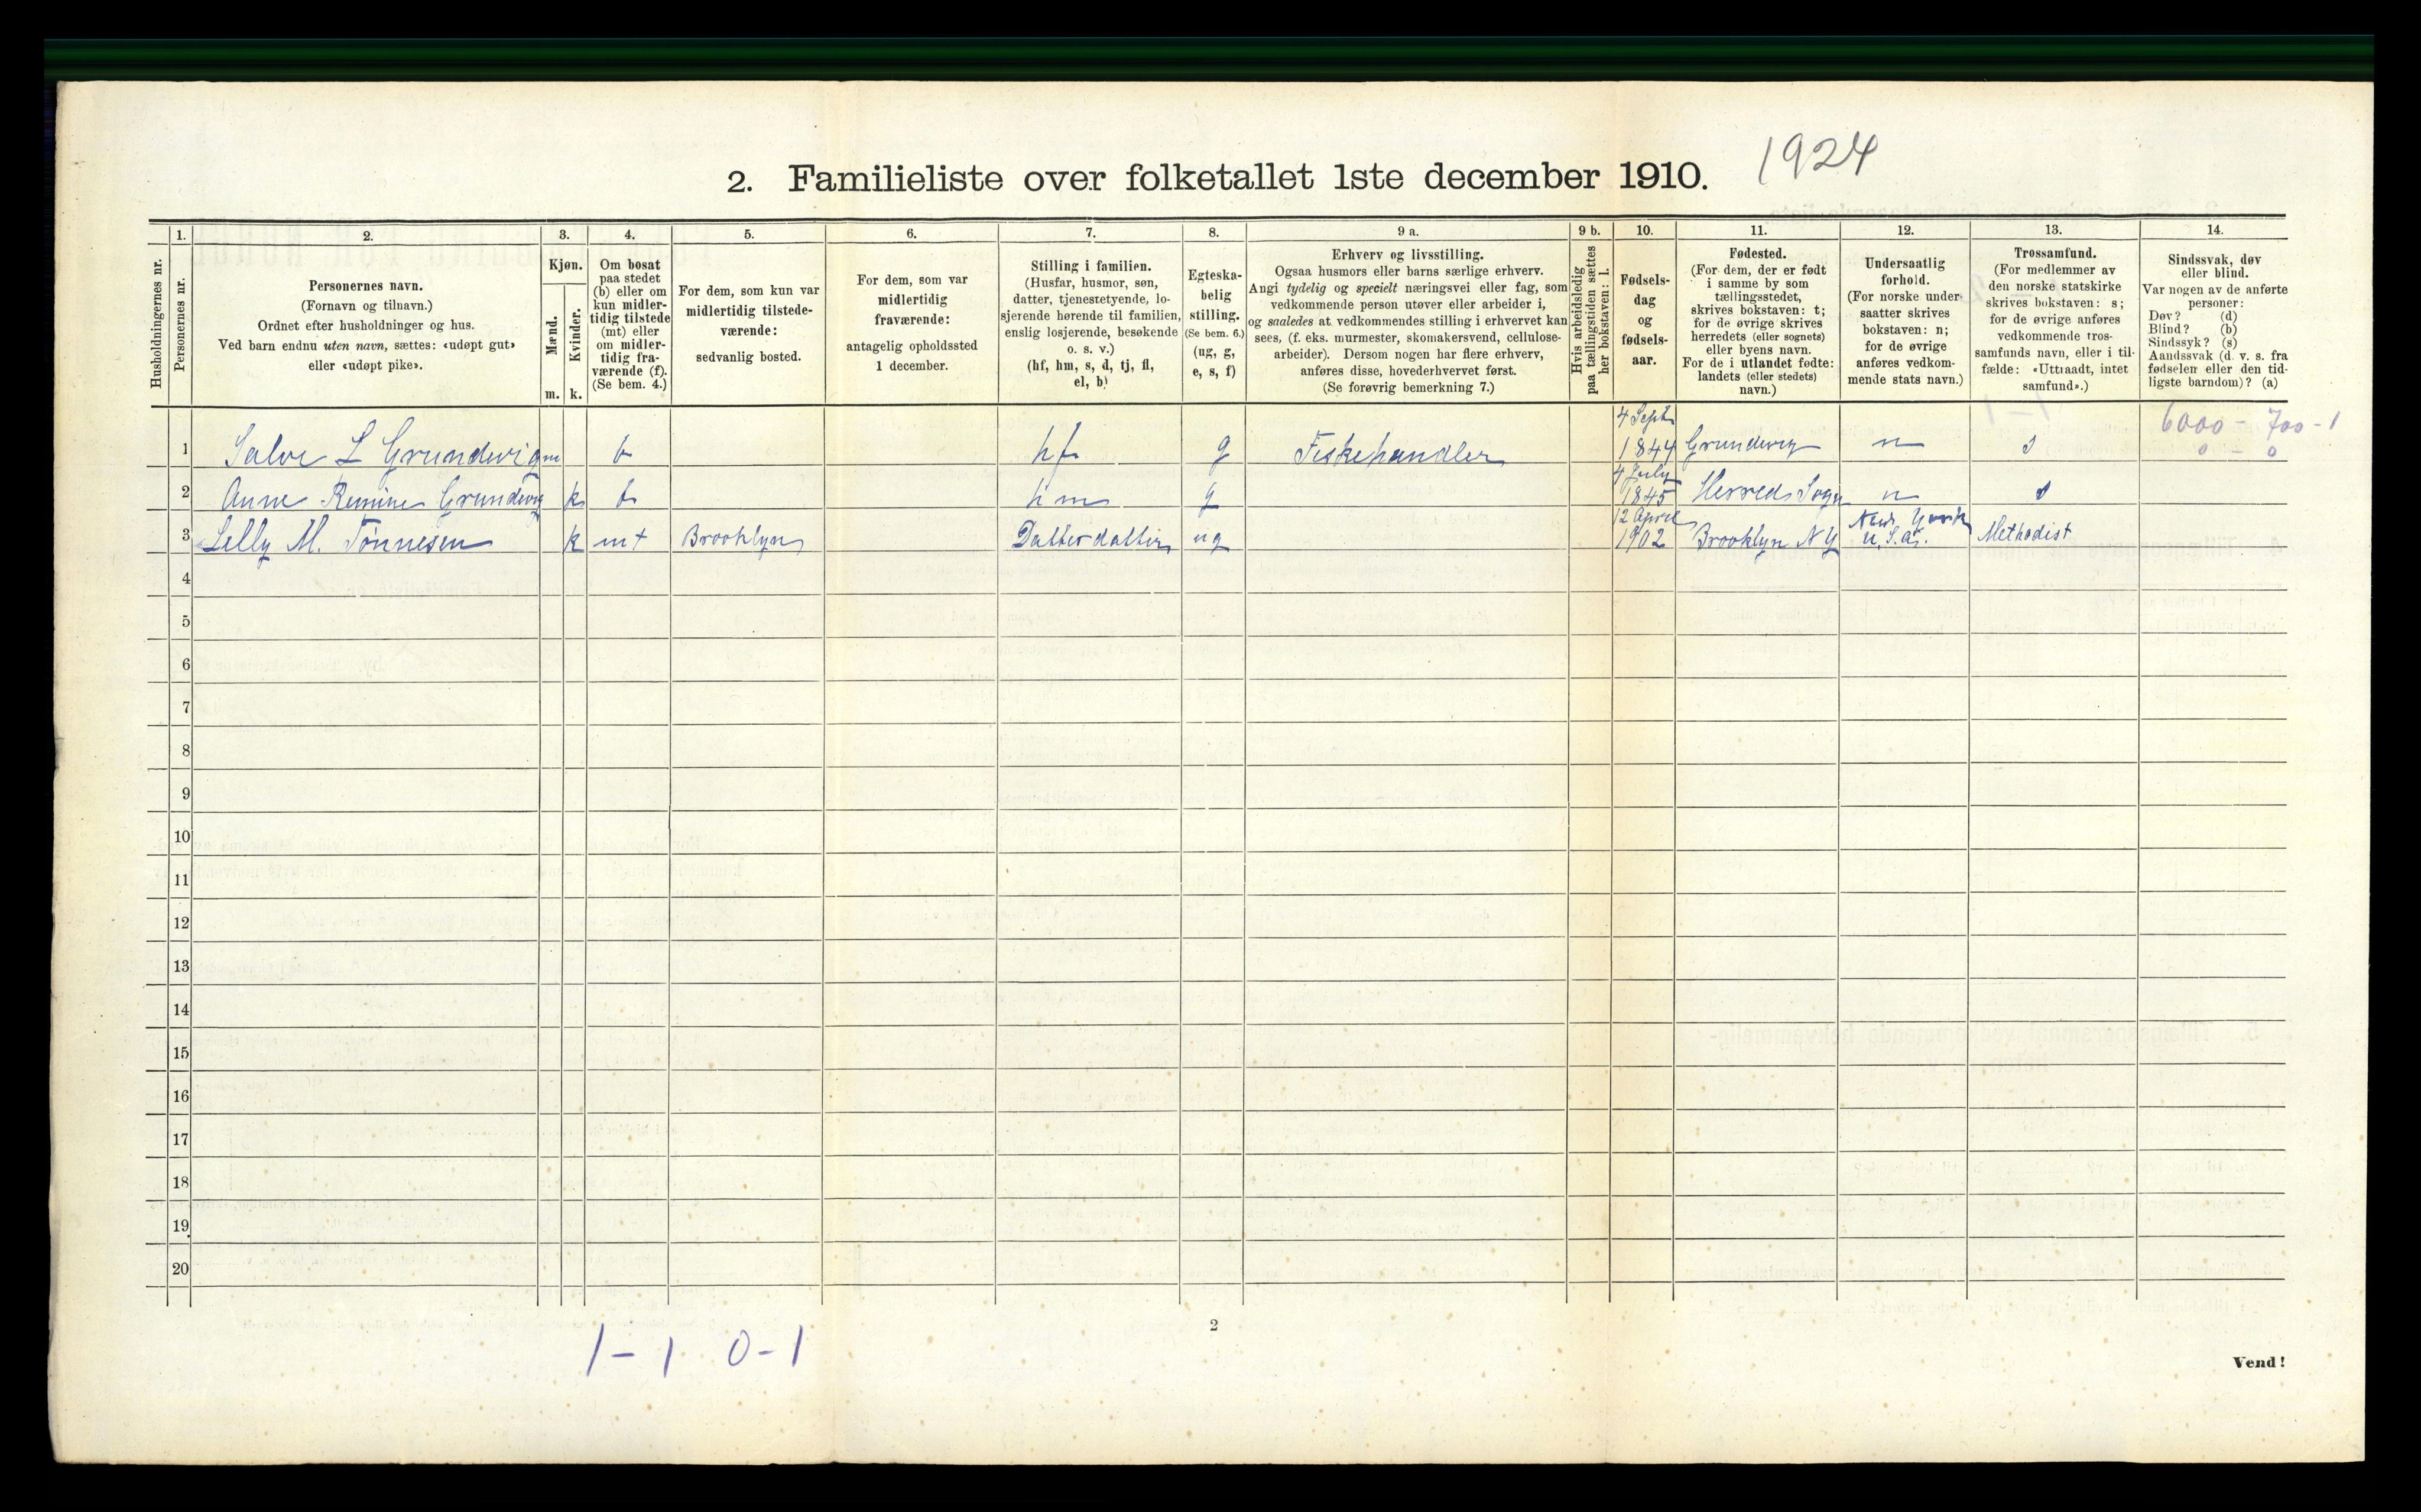 2. Familieliste over folketallet 1ste december 1910.
1924
Husholdningernes nr.
1.
Personernes nr.
2.
Personernes navn.
(Fornavn og tilnavn.)
Ordnet efter husholdninger og hus.
Ved barn endnu uten navn, sættes: «udøpt gut»
eller «udøpt pike».
3.
Kjøn.
Mænd.
Kvinder.
m. k.
4.
Om bosat
paa stedet
(b) eller om
kun midler-
tidig tilstede
(mt) eller
om midler-
tidig fra-
værende (f).
(Se bem. 4.)
5.
For dem, som kun var
midlertidig tilstede-
værende:
sedvanlig bosted.
6.
For dem, som var
midlertidig
fraværende:
antagelig opholdssted
1 december.
7.
Stilling i familien.
(Husfar, husmor, søn,
datter, tjenestetyende, lo-
sjerende hørende til familien,
enslig losjerende, besøkende
o. s. v.)
(hf, hm, s, d, tj, fl,
el, b)
8.
Egteska-
belig
stilling.
(Se bem. 6.)
(ug, g,
e, s, f)
9 a.
Erhverv og livsstilling.
Ogsaa husmors eller barns særlige erhverv.
Angi tydelig og specielt næringsvei eller fag, som
vedkommende person utøver eller arbeider i,
og saaledes at vedkommendes stilling i erhvervet kan
sees, (f. eks. murmester, skomakersvend, cellulose-
arbeider). Dersom nogen har flere erhverv,
anføres disse, hovederhvervet først.
(Se forøvrig bemerkning 7.)
9 b.
Hvis arbeidsledig
paa tællingstiden sættes
her bokstaven: l.
10.
Fødsels-
dag
og
fødsels-
aar.
11.
Fødested.
(For dem, der er født
i samme by som
tællingsstedet,
skrives bokstaven: t;
for de øvrige skrives
herredets (eller sognets)
eller byens navn.
For de i utlandet fødte:
landets (eller stedets)
navn.)
12.
Undersaatlig
forhold.
(For norske under-
saatter skrives
bokstaven: n;
for de øvrige
anføres vedkom-
mende stats navn.)
13.
Trossamfund.
(For medlemmer av
den norske statskirke
skrives bokstaven: s;
for de øvrige anføres
vedkommende tros-
samfunds navn, eller i til-
fælde: «Uttraadt, intet
samfund».)
14.
Sindssvak, døv
eller blind.
Var nogen av de anførte
personer:
Døv? (d)
Blind? (b)
Sindssyk? (s)
Aandssvak (d. v. s. fra
fødselen eller den tid-
ligste barndom)? (a)
6000 - 700 - 1
0 - 0
1 Salve L Grundevig m b hf g Fiskehandler 4 Sept 1844 Grundevig n s
2 Anne Remine Grundevig k b hm g 4 July 1845 Herreds Sogn n s
3 Lilly M. Tønnesen k mt Brooklyn Datterdatter ug 12 April 1902 Brooklyn N Y New York U.S.a. Methodist
4
5
6
7
8
9
10
11
12
13
14
15
16
17
18
19
20
1-1 0-1
2
Vend!